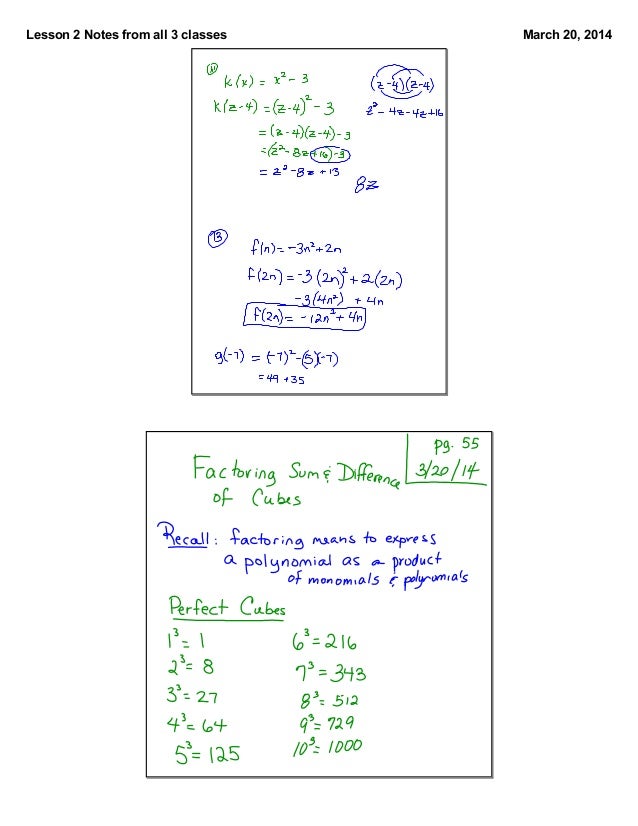 Lesson 2 Notes from all 3 classes
March 20, 2014
k(x) = x² - 3
k(z-4) = (z-4)² - 3
= (z-4)(z-4) - 3
= (z² - 8z + 16) - 3
= z² - 8z + 13
(z-4)(z-4)
z² - 4z - 4z + 16
8z
13
f(n) = -3n² + 2n
f(2n) = -3(2n)² + 2(2n)
-3(4n²) + 4n
f(2n) = -12n² + 4n
g(-7) = (-7)² - (5)(-7)
= 49 + 35
pg. 55
3/20/14
Factoring Sum & Difference
of Cubes
Recall: factoring means to express
a polynomial as a product
of monomials & polynomials
Perfect Cubes
1³ = 1
2³ = 8
3³ = 27
4³ = 64
5³ = 125
6³ = 216
7³ = 343
8³ = 512
9³ = 729
10³ = 1000